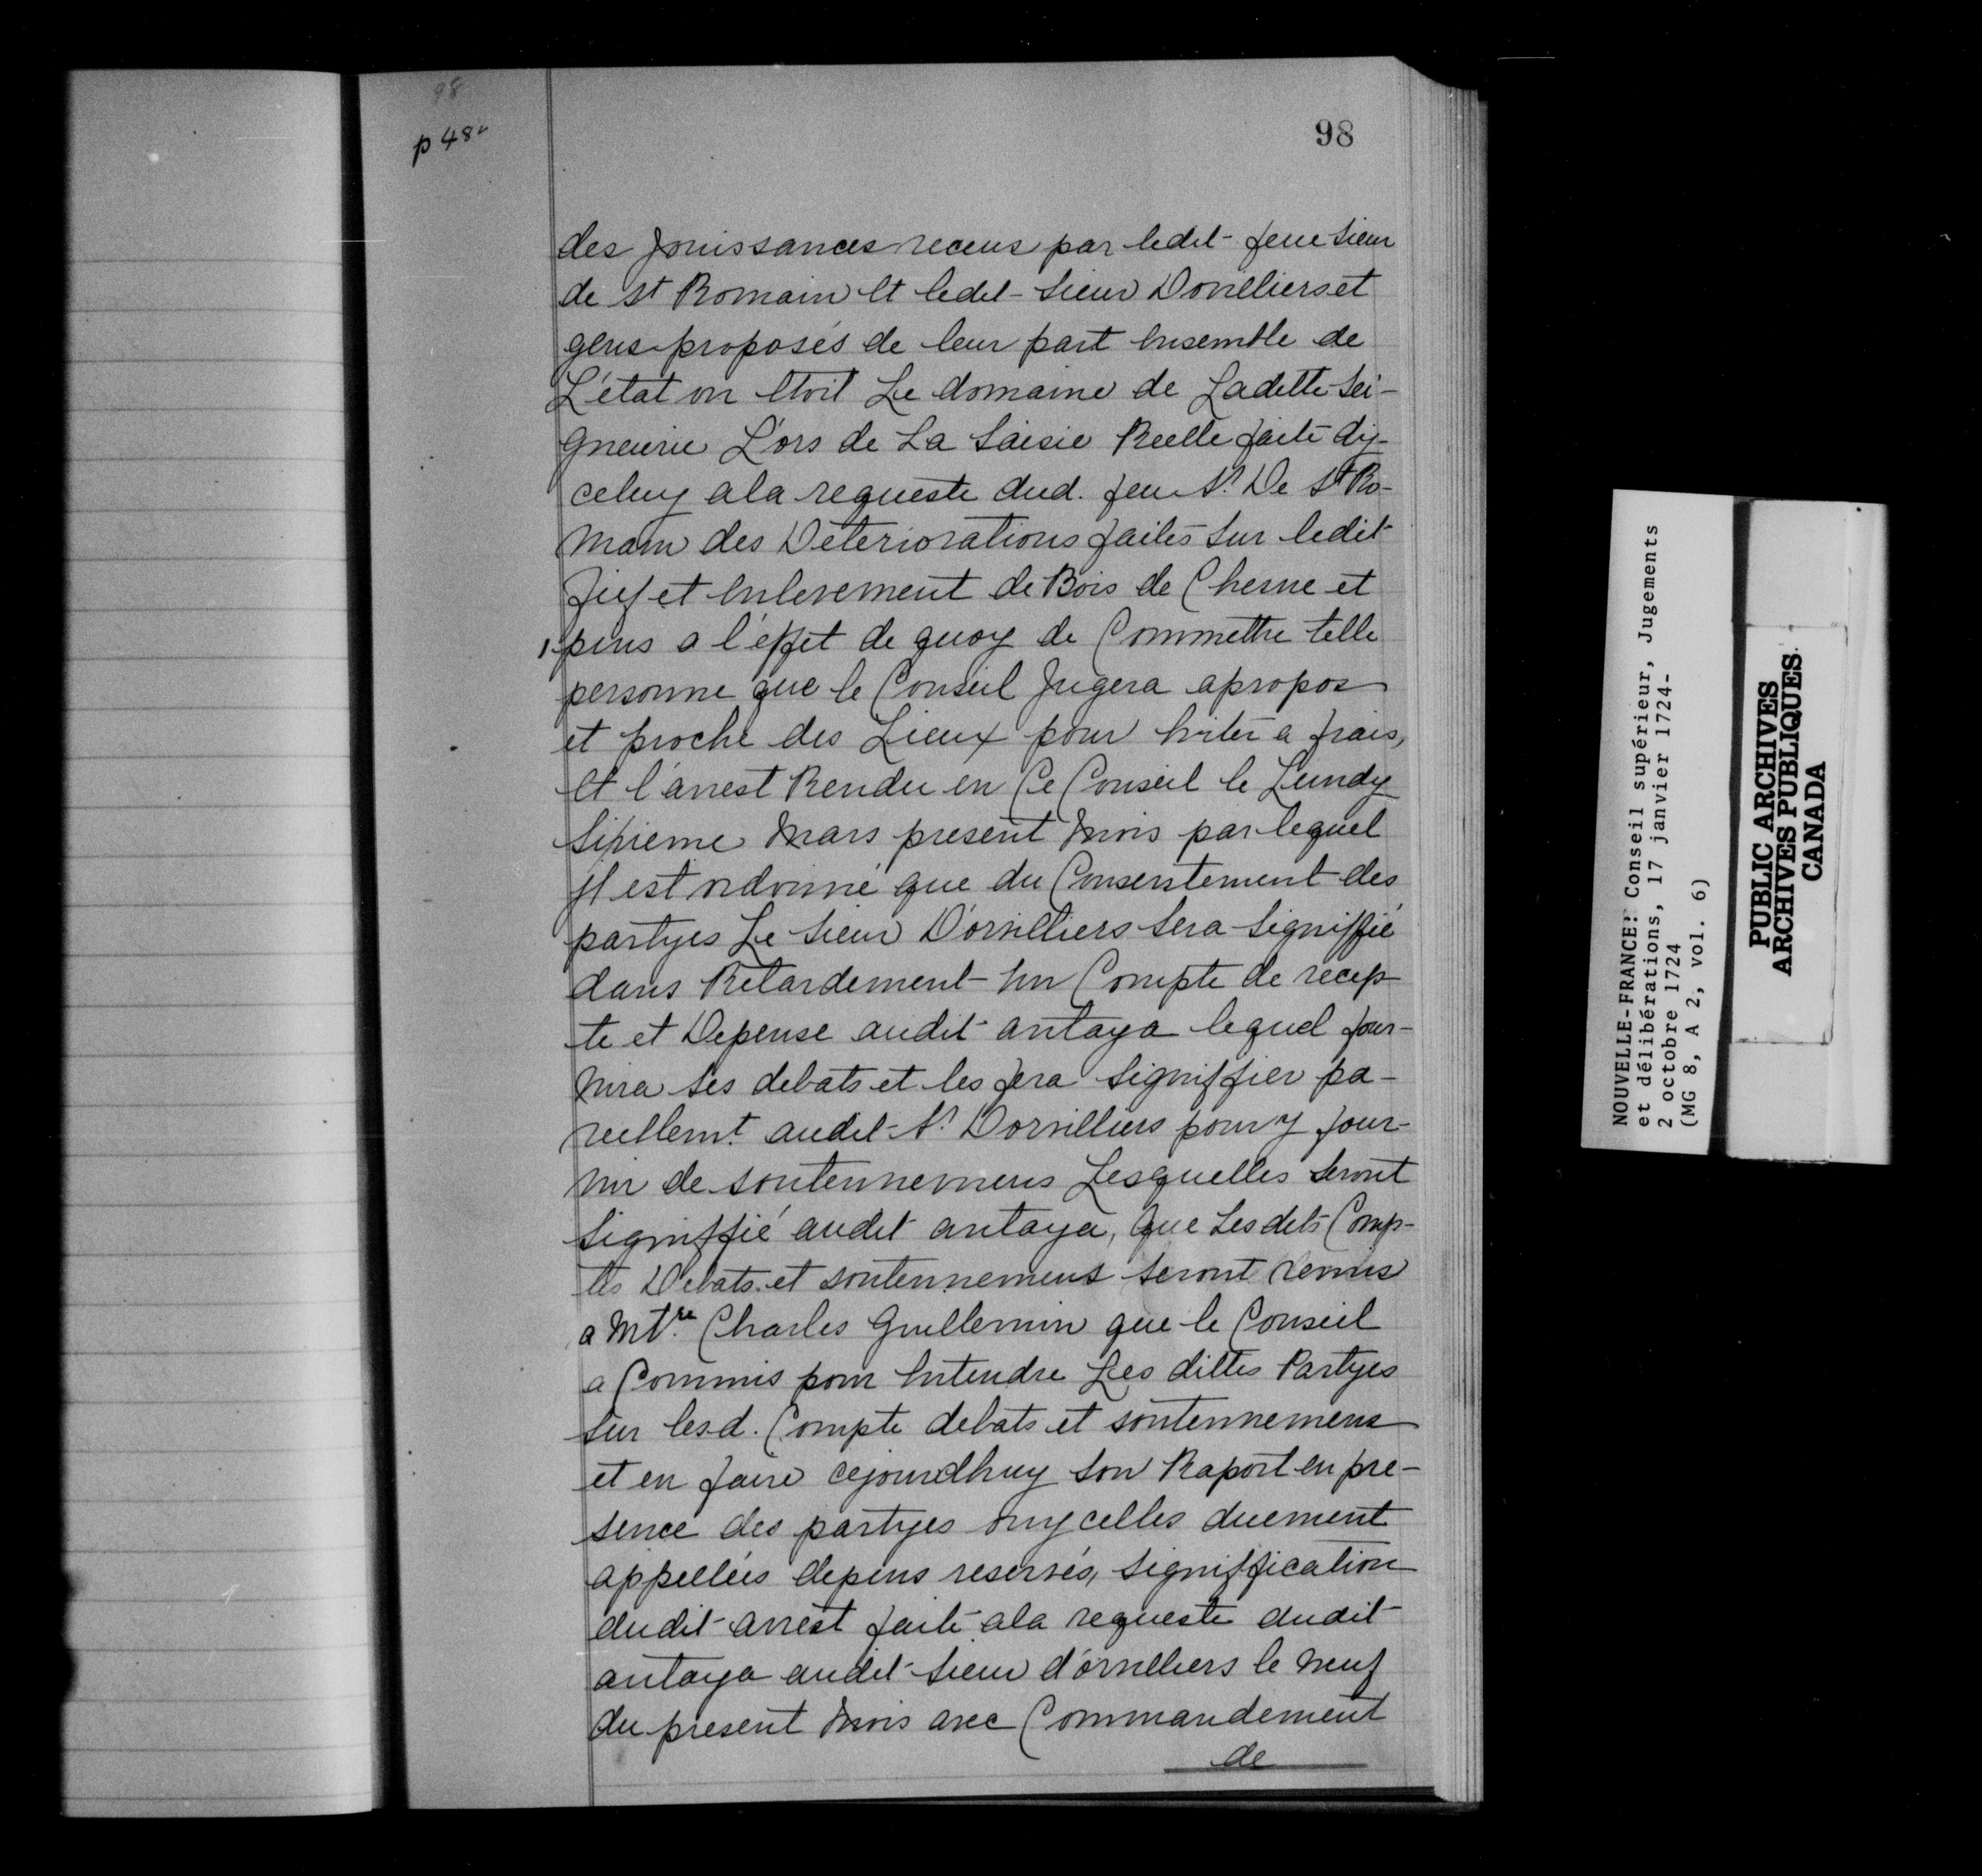 98
p 48v
98
des Jouissances receus par ledit feue Sieur
de St Romain Et ledit Sieur Dorvilliers et
gens proposés de leur part Ensemble de
L'état ou Etoit Le domaine de Laditte Sei-
gneurie L'ors de La Saisie Reelle faite dy-
celuy ala requeste dud. feu Sr. De St Ro-
main des Deteriorations faites Sur ledit
fief et Enlevement de Bois de Chesne et
pins a l'éffet de quoy de Commettre telle
personne que le Conseil Jugera apropos
et proche des Lieux pour Eviter a frais,
Et l'arrest Rendu en Ce Conseil le Lundy
Sixieme Mars present Mois par lequel
Jl est ordonné que du Consentement des
partyes Le Sieur D'orvilliers Sera Signiffié
dans Retardement Un Compte de recep-
te et Depense audit antaya lequel four-
nira Ses debats et les fera Signiffier pa-
reillemt. audit Sr. Dorvilliers pour y four-
nir de soutennemens Lesquelles Seront
Signiffié audit antaya, que Lesdits Comp-
tes Debats et soutennemens Seront remis
a Mtre. Charles Guillemin que le Conseil
a Commis pour Entendre Les dittes Partyes
Sur lesd. Compte debats et soutennemens
et en faire cejourdhuy Son Raport en pre-
sence des partyes ouycelles duement
appellées depens reservés, Signiffication
dudit arrest faite ala requeste dudit
antaya audit Sieur d'orvilliers le neuf
du present Mois avec Commandement
de
NOUVELLE-FRANCE: Conseil supérieur, Jugements
et délibérations, 17 janvier 1724-
2 octobre 1724
(MG 8, A 2, vol. 6)
PUBLIC ARCHIVES
ARCHIVES PUBLIQUES
CANADA